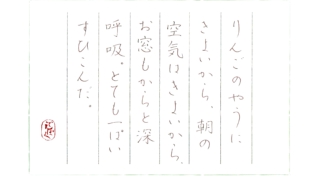 りんごのやうに
きよいから、朝の
空気はきよいから、
お窓もからと深
呼吸。とても一ぱい
すひこんだ。